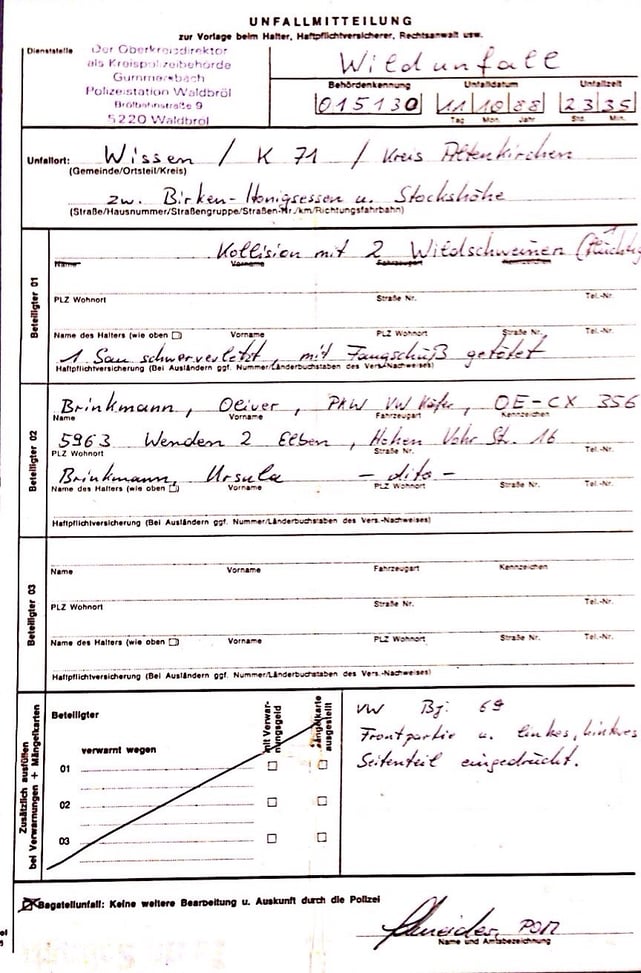 UNFALLMITTEILUNG
zur Vorlage beim Halter, Haftpflichtversicherer, Rechtsanwalt usw.
Dienststelle
Der Oberkreisdirektor
als Kreispolizeibehörde
Gummersbach
Polizeistation Waldbröl
Brölbahnstraße 9
5220 Waldbröl
Wildunfall
Behördenkennung Unfalldatum Unfallzeit
015130 11 10 88 23 35
Tag Mon. Jahr Std. Min.
Unfallort: Wissen / K 71 / Kreis Altenkirchen
(Gemeinde/Ortsteil/Kreis)
zw. Birken-Honigsessen u. Stockshöhe
(Straße/Hausnummer/Straßengruppe/Straßen-Nr./km/Richtungsfahrbahn)
Beteiligter 01
Kollision mit 2 Wildschweinen (
Name Vorname Fahrzeugart Kennzeichen
PLZ Wohnort Straße Nr. Tel.-Nr.
Name des Halters (wie oben ) Vorname PLZ Wohnort Straße Nr. Tel.-Nr.
1 Sau schwerverletzt, mit Fangschuß getötet
Haftpflichtversicherung (Bei Ausländern ggf. Nummer/Länderbuchstaben des Vers.-Nachweises)
Beteiligter 02
Brinkmann, Oliver, PKW VW Käfer, OE-CX 356
Name Vorname Fahrzeugart Kennzeichen
5963 Wenden 2 Elben, Hohen Str. 16
PLZ Wohnort Straße Nr. Tel.-Nr.
Brinkmann, Ursula - dito -
Name des Halters (wie oben ) Vorname PLZ Wohnort Straße Nr. Tel.-Nr.
Haftpflichtversicherung (Bei Ausländern ggf. Nummer/Länderbuchstaben des Vers.-Nachweises)
Beteiligter 03
Name Vorname Fahrzeugart Kennzeichen
PLZ Wohnort Straße Nr. Tel.-Nr.
Name des Halters (wie oben ) Vorname PLZ Wohnort Straße Nr. Tel.-Nr.
Haftpflichtversicherung (Bei Ausländern ggf. Nummer/Länderbuchstaben des Vers.-Nachweises)
Zusätzlich ausfüllen
bei Verwarnungen + Mängelkarten
Beteiligter
verwarnt wegen
mit Verwar-
nungsgeld
Mängelkarte
ausgestellt
01
02
03
VW Bj: 69
Frontpartie u. linkes, hinteres
Seitenteil eingedrückt.
Bagatellunfall: Keine weitere Bearbeitung u. Auskunft durch die Polizei
Schneider, POM
Name und Amtsbezeichnung